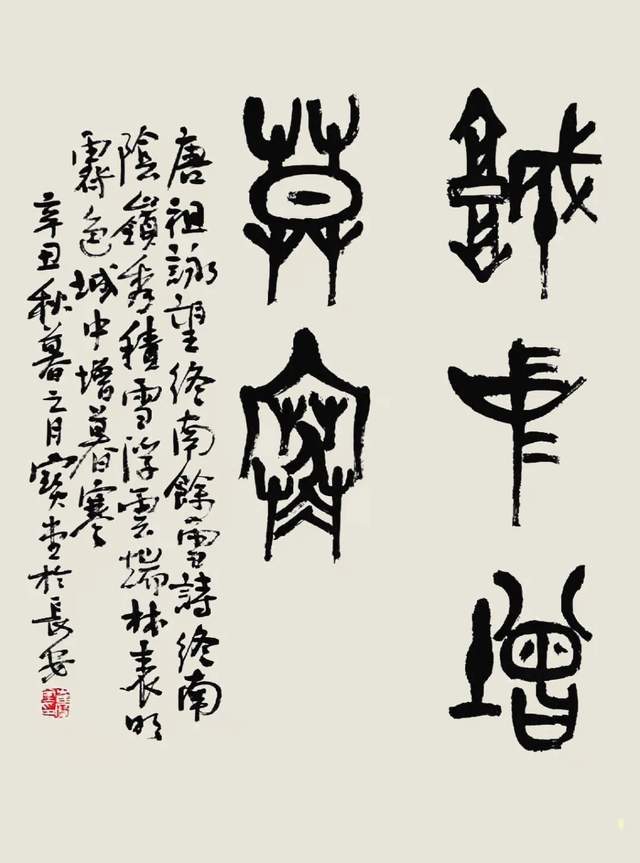 城中增
莫寒
唐祖詠望終南餘雪詩終南
陰嶺秀積雪浮雲端林表明
霽色城中增暮寒
辛丑秋暮之月寶堂於長安